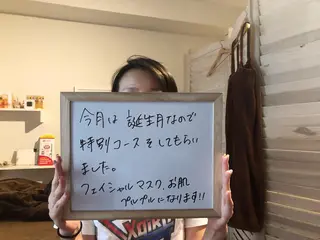 今月は 誕生月なので
特別 コースを してもらい
ました。
フェイシャル マスク、お肌
プルプルになります!!